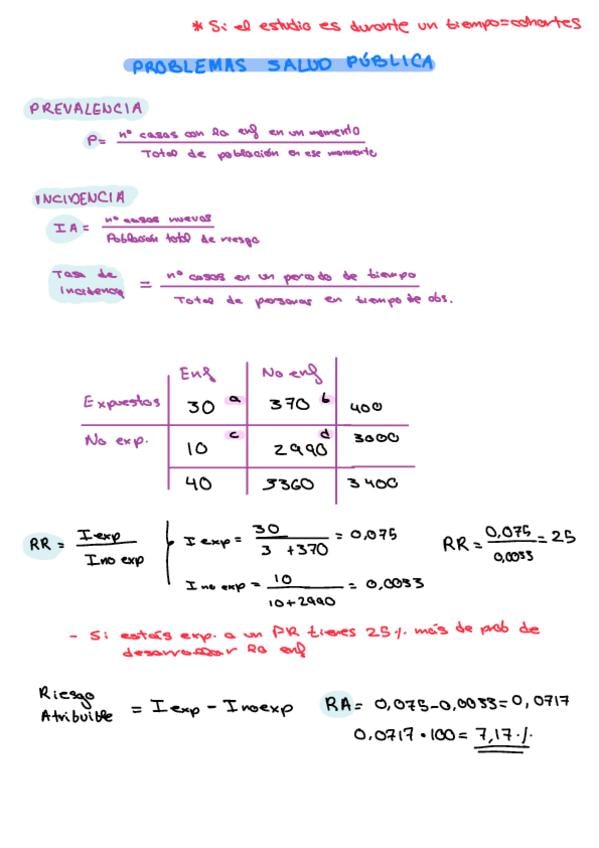 * Si el estudio es durante un tiempo=cohortes
PROBLEMAS SALUD PÚBLICA
PREVALENCIA
P= nº casos con la enf en un momento
Total de población en ese momento
INCIDENCIA
IA= nº casos nuevos
Población total de riesgo
Tasa de Incidencia = nº casos en un periodo de tiempo
Total de personas en tiempo de obs.
Enf No enf
Expuestos 30 a 370 b 400
No exp. 10 c 2990 d 3000
40 3360 3400
RR = Iexp / Ino exp
I exp = 30 / 3 +370 = 0,075
RR = 0,075 / 0,0033 = 25
Ino exp = 10 / 10+2990 = 0,0033
- Si estás exp. a un FR tienes 25% más de prob de
desarrollar la enf
Riesgo Atribuible = Iexp - Inoexp
RA= 0,075-0,0033=0,0717
0,0717·100=7,17%